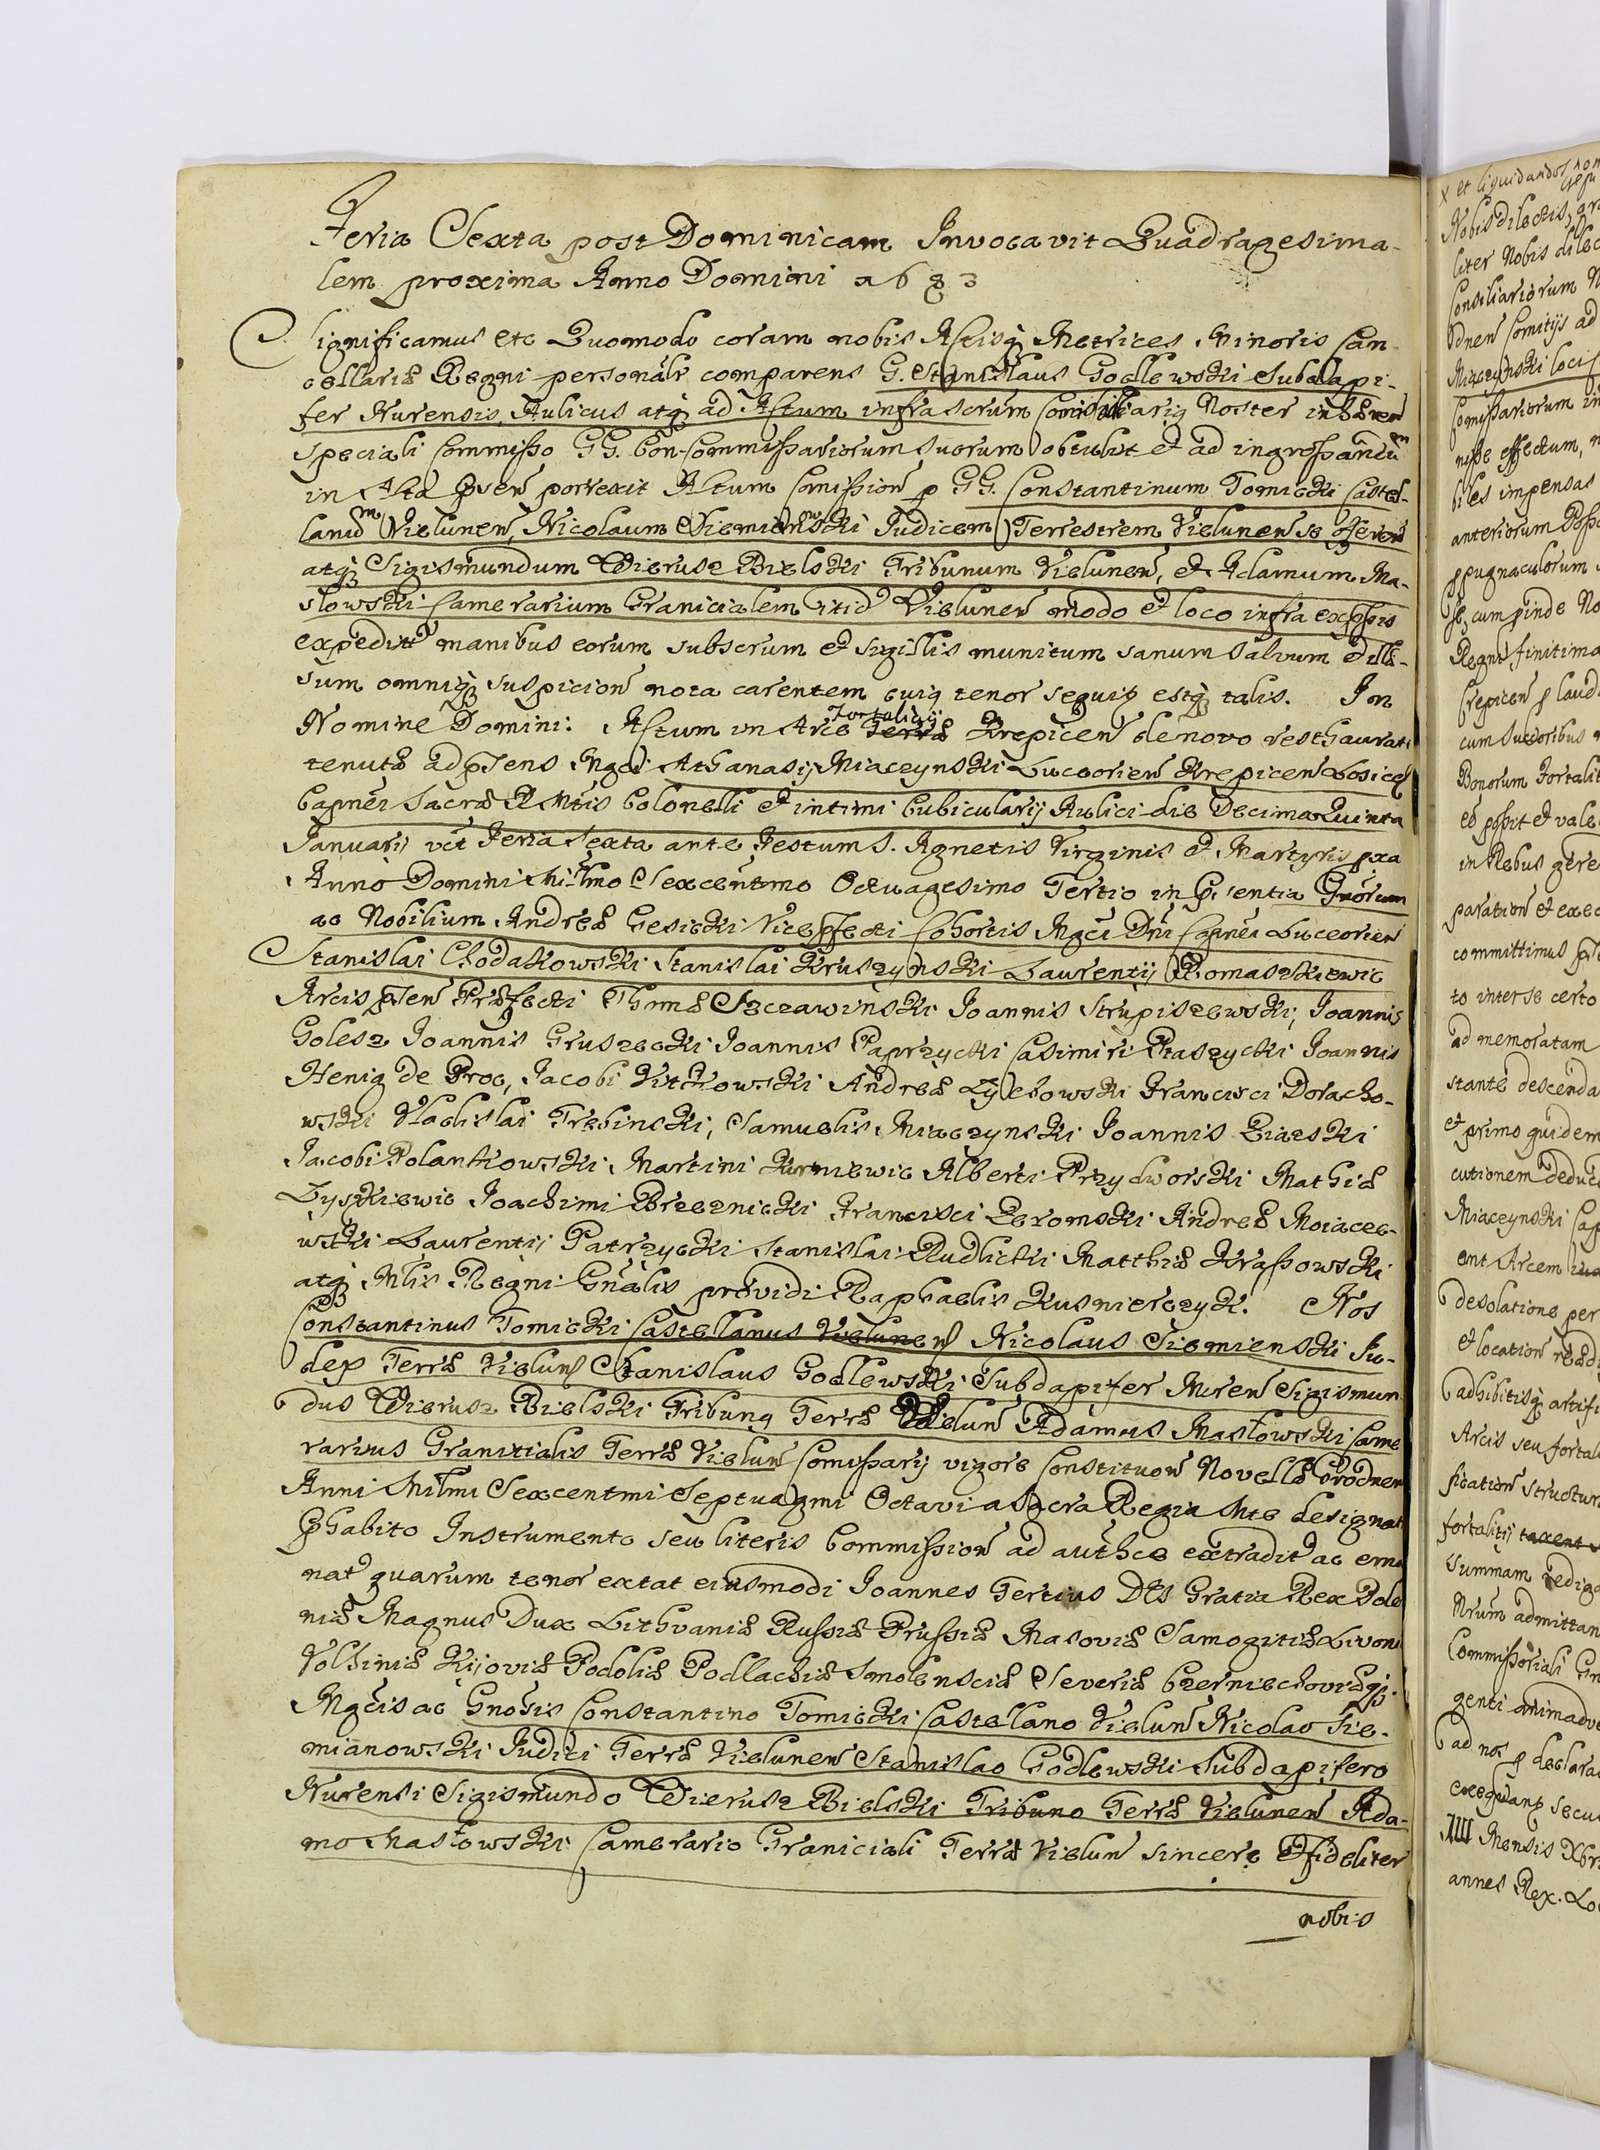 Feria Sexta post Dominicam Invocavit Quadragesima-
lem proxima Anno Domini 1683
Significamus etc Quomodo coram nobis Actisq Metrices Minoris Can-
cellariæ Regni personalr comparens G. Stanislaus Godlewski Subdapi-
fer Nurensis, Aulicus atq ad Actum infrascrum Noster
speciali Commisso GG. Con-Commissariorum Suorum obtulit et ad ingrossandum
in Acta pñen porrexit Actum Comission p GG. Constantinum Tomicki Castel-
lanum Vielunen, Nicolaum Siemienski Judicem Terrestrem Vielunen
atq Sigismundum Wierusz Bielski Tribunum Vielunen, et Adamum Ma-
slowski Camerarium Granicialem itid Vielunen modo et loco infra expssis
expeditt manibus eorum subscrum et sigillis munitum sanum salvum et illæ-
sum omniq suspicion nota carentem cuiq tenor sequis estq talis. In
Nomine Domini: Actum in Arce Fortalicij Terræ Krepicen denovo resthaurat
tenutæ ad psens Mgci Athanasij Miaczynski Luceorien Krepicen Losicen
Capnei Sacræ R Mtis Colonelli et intimi Cubicularij Aulici die Decima Quinta
Januarij vet Feria Sexta ante Festum S. Agnetis Virginis et Martyris pxa
Anno Domini Millmo Sexcentmo Octuagesimo Tertio in Psentia Gnorum
ac Nobilium Andreæ Gesicki Vicepfecti Cohortis Mgci Dni Capnei Luceorien
Stanislai Chodakowski Stanislai Kruszynski Laurentij Romaszkiewic
Arcis psen Præfecti Thomæ Szczawinski Joannis Strupiszewski, Joannis
Golesz Joannis Gruszecki Joannis Paprzycki Casimiri Ptaszycki Joannis
Henig de Proc, Jacobi Vitkowski Andreæ Lychowski Francisci Doracho-
wski Vladislai Trebinski, Samuelis Miaczynski Joannis Ziazski
Jacobi Polankowski Martini Kurniewic Alberti Przydworski Mathiæ
Lyszkiewic Joachimi Brzeznicki Francisci Zeromski Andreæ Moiacze-
wski Laurentij Patrzycki Stanislai Rudlicki Matthiæ Krassowski
atq Mlis Regni Gnalis providi Raphaelis Kusnierczyk. Nos
Constantinus Tomicki Castellanus Vielunen Nicolaus Siemienski Ju-
dex Terræ Vielun Stanislaus Godlewski Subdapifer Nuren Sigismun
dus Wierusz Bielski Tribunq Terræ Vielun Adamus Maslowski Came
rarius Granitialis Terræ Vielun Comissarij vigore Constituon Novellæ Grodnen
Anni Millmi Sexcentmi Septuagmi Octavi a Sacra Regia Mte designat
Phabito Instrumento seu literis Commission ad authce extradit ac ema
nat quarum tenor extat eiusmodi Joannes Tertius Dei Gratia Rex Polo
niæ Magnus Dux Lithvaniæ Russiæ Prussiæ Masoviæ Samogitiæ Livoni
Volhiniæ Kijoviæ Podoliæ Podlachiæ Smolensciæ Severiæ Czerniechoviæq
Mgcis ac Gnosis Constantino Tomicki Castellano Vielun Nicolao Sie-
mianowski Judici Terræ Vielunen Stanislao Godlewski Subdapifero
Nurensi Sigismundo Wierusz Bielski Tribuno Terræ Vielunen Ada-
mo Maslowski Camerario Graniciali Terræ Vielun sincere et fideliter
nobis
x et liquidandos
Nobis dilectis,
liter Nobis dilec
Consiliariorum
Comitijs ad
Miaczynski
Comissariorum in
effectum,
impensas
anteriorum
ppugnaculorum
cum pinde
Regni finitima
Krepicen p laud
cum
Bonorum Fortalit
possit et vale
in Rebus gere
paration et exec
committimus
to inter se certo
ad memoratam
stante descenda
et primo quidem
cutionem deduc
Miaczynski Cap
ent Arcem
desolatione per
et location
adhibitisq artifi
Arcis seu fortali
fication structur
fortalitij
Summam redig
Nrum admittan
Commissoriali
genti animadve
ad nos p declara
exequant secu
IIII Mensis Xbri
annes Rex.